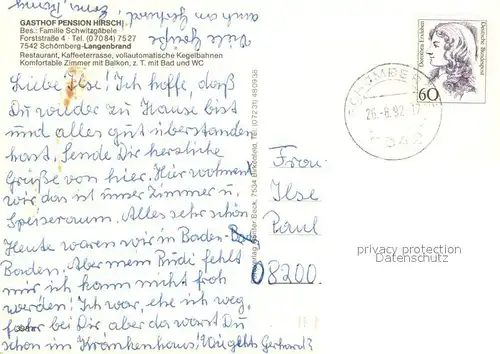 GASTHOF PENSION HIRSCH
Bes.: Familie Schwitzgäbele
Forststraße 4 · Tel. (07084) 7527
7542 Schömberg-Langenbrand
Restaurant, Kaffeeterrasse, vollautomatische Kegelbahnen
Komfortable Zimmer mit Balkon, z. T. mit Bad und WC
Viele Grüße
auch an Gerhard,
Liebe Ilse! Ich hoffe, daß
Du wieder zu Hause bist
und alles gut überstanden
hast. Sende Dir herzliche
Grüße von hier. Hier wohnen
wir, das ist unser Zimmer u.
Speiseraum. Alles sehr schön
Heute waren wir in Baden-
Baden. Aber mein Rudi fehlt
mir ich kann nicht froh
werden! Ich war, ehe ich weg
fuhr bei Dir aber da warst Du
schon im Krankenhaus! Wie gehts Gerhard?
Deutsche Bundespost
Dorothea Erxleben
60
SCHÖMBERG
26.-8.92
7542
Frau
Ilse
Paul
08200
7534 Birkenfeld, Tel. (07231)
privacy protection
Datenschutz